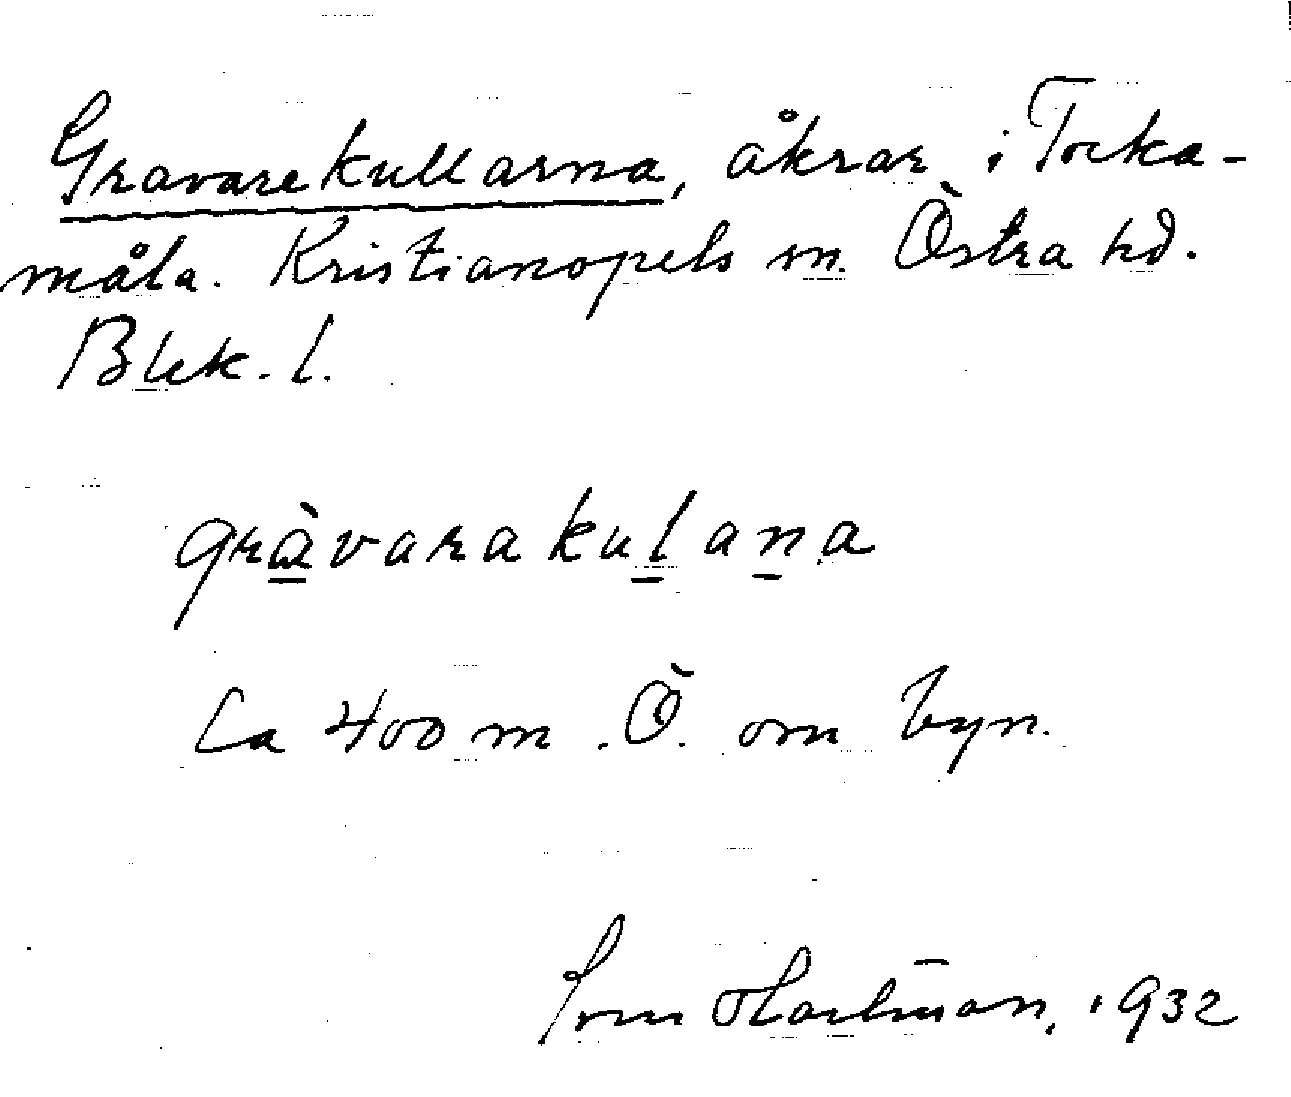 Gravarekullarna, åkrar i Tocka-
måla. Kristianopels sn. Östra hd.
Blek. l.
gràvarakulana
Ca 400 m .Ö. om byn.
Hartman, 1932